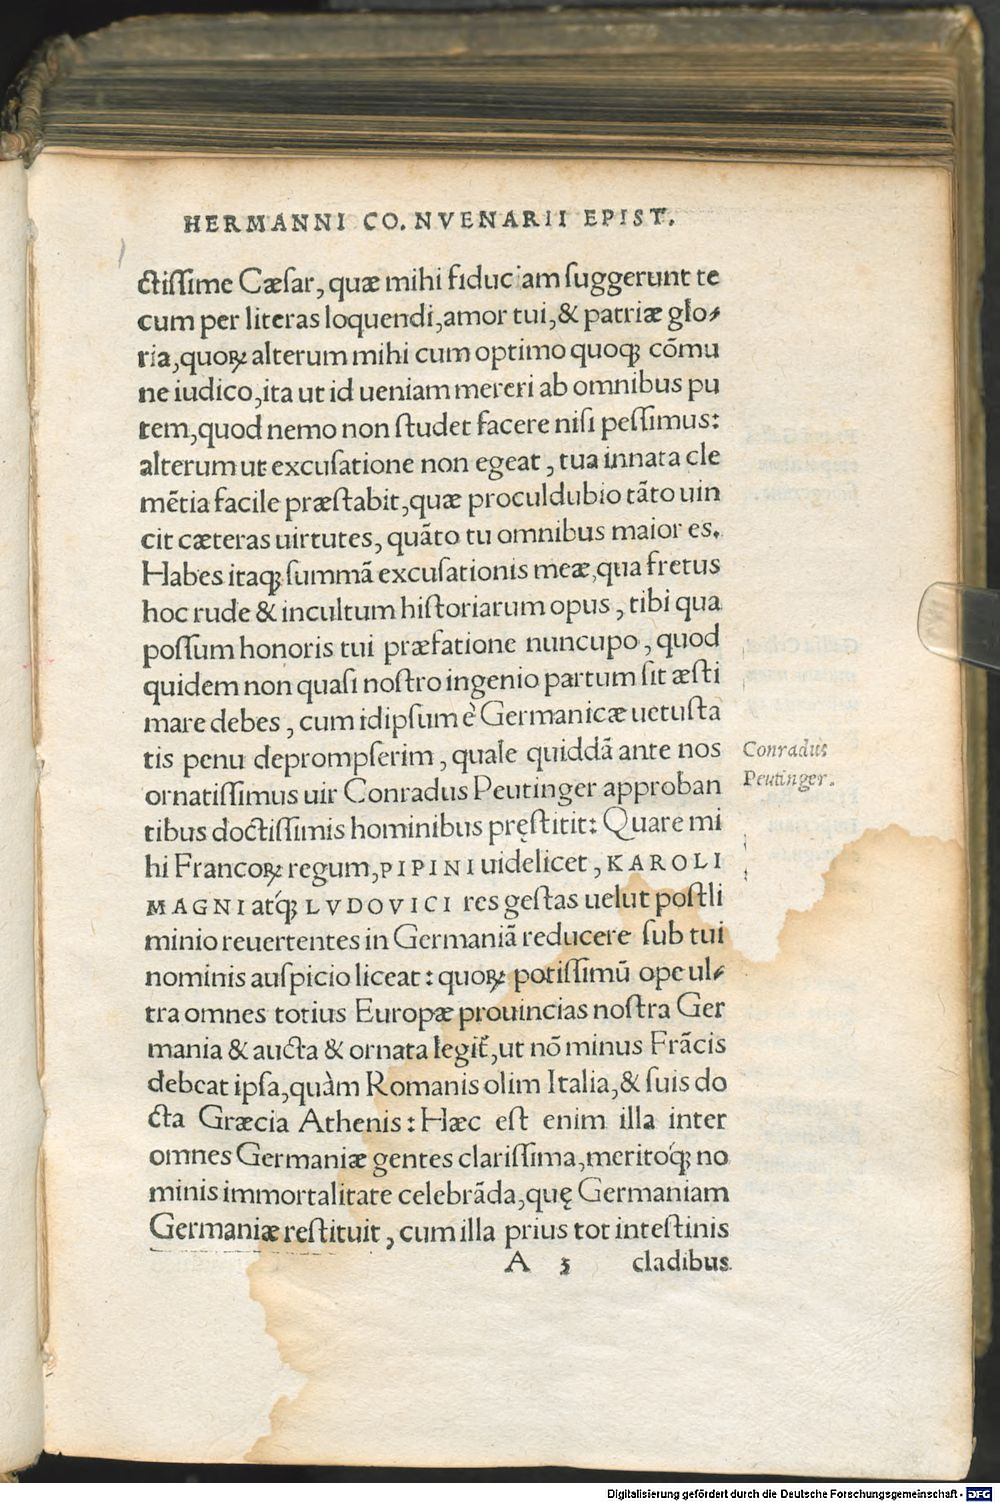 HERMANNI CO. NVENARII EPIST.
ctissime Cæsar, quæ mihi fiduciam suggerunt te
cum per literas loquendi, amor tui, & patriæ glo-
ria, quoꝝ alterum mihi cum optimo quoqꝫ cõmu
ne iudico, ita ut id ueniam mereri ab omnibus pu
tem, quod nemo non studet facere nisi pessimus:
alterum ut excusatione non egeat, tua innata cle
mẽtia facile præstabit, quæ proculdubio tãto uin
cit cæteras uirtutes, quãto tu omnibus maior es.
Habes itaqꝫ summã excusationis meæ, qua fretus
hoc rude & incultum historiarum opus, tibi qua
possum honoris tui præfatione nuncupo, quod
quidem non quasi nostro ingenio partum sit æsti
mare debes, cum idipsum è Germanicæ uetusta
tis penu deprompserim, quale quiddã ante nos
Conradus
Peutinger.
ornatissimus uir Conradus Peutinger approban
tibus doctissimis hominibus pręstitit: Quare mi
hi Francoꝝ regum, PIPINI uidelicet, KAROLI
MAGNI atq́ꝫ LVDOVICI res gestas uelut postli
minio reuertentes in Germaniã reducere sub tui
nominis auspicio liceat: quoꝝ potissimũ ope ul-
tra omnes totius Europæ prouincias nostra Ger
mania & aucta & ornata legit̃, ut nõ minus Frãcis
debeat ipsa, quàm Romanis olim Italia, & suis do
cta Græcia Athenis: Hæc est enim illa inter
omnes Germaniæ gentes clarissima, meritoq́ꝫ no
minis immortalitate celebrãda, quę Germaniam
Germaniæ restituit, cum illa prius tot intestinis
A 3 cladibus
Digitalisierung gefördert durch die Deutsche Forschungsgemeinschaft - DFG